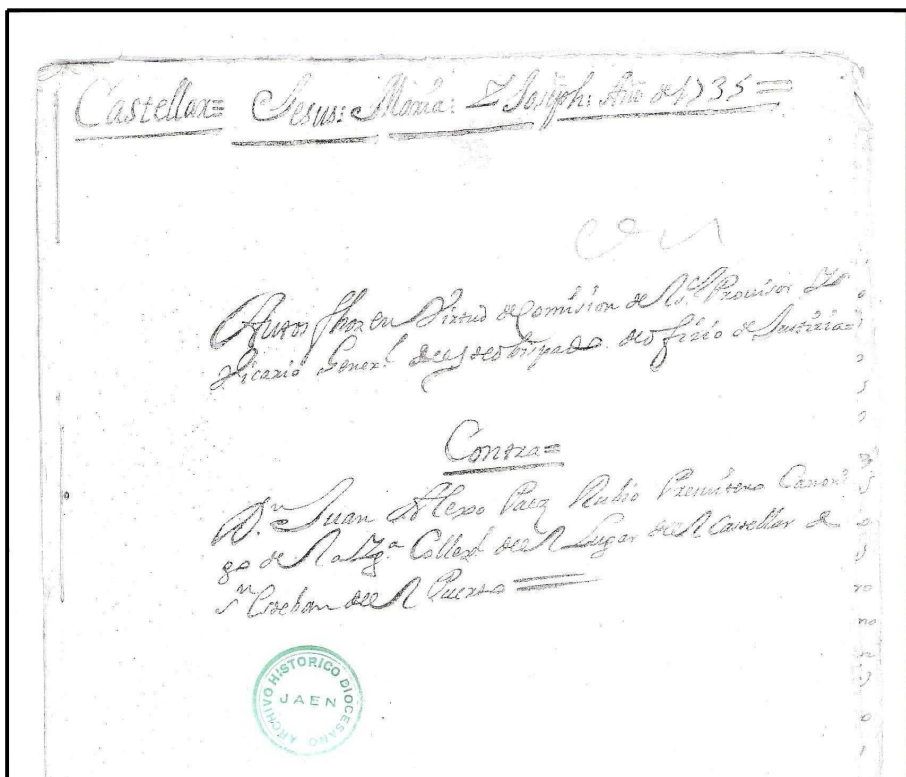 Castellar= Jesus: Maria: Y Joseph: Año de 1735=
Autos fhos en Virtud de Comision de el Sr. Provisor Y
Vicario Gener.l deeste obispado. de ofizio de Justizia=
Contra=
D.n Juan Alexo Paez Rubio Presuitero Canoni
go de la Yg.a Collex.l deel Lugar deel Castellar de
S.n Esteban deel Puerto=
ARCHIVO HISTORICO DIOCESANO
JAEN